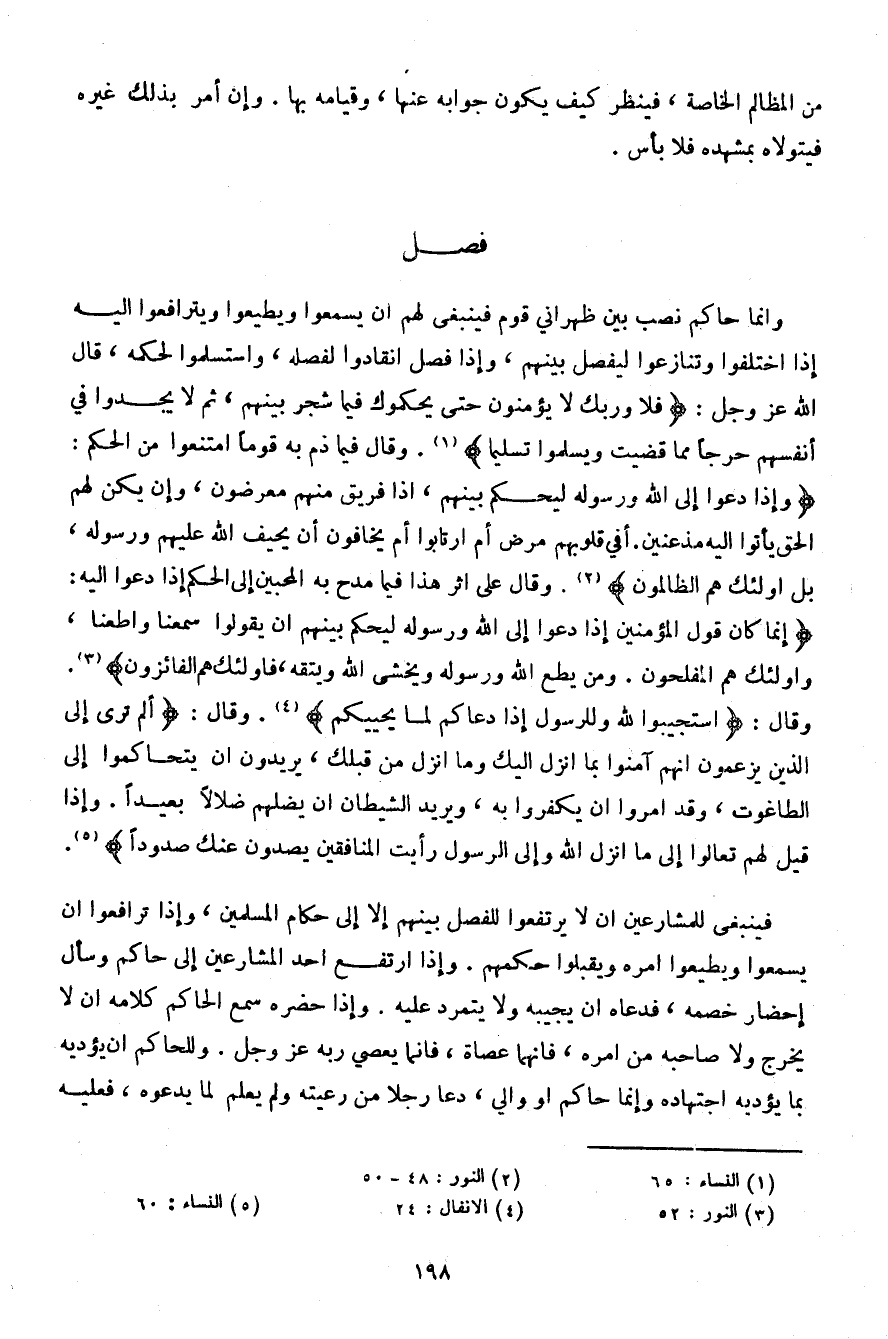 من المظالم الخاصة ، فينظر كيف يكون جوابه عنها ، وقيامه بها . وإن أمر بذلك غيره
فيتولاه بمشهده فلا بأس .
فصــل
وانما حاكم نصب بين ظهراني قوم فينبغى لهم ان يسمعوا ويطيعوا ويترافعوا اليــه
إذا اختلفوا وتنازعوا ليفصل بينهم ، وإذا فصل انقادوا لفصله ، واستسلموا لحكمه ، قال
الله عز وجل : ﴿ فلا وربك لا يؤمنون حتى يحكموك فيما شجر بينهم ، ثم لا يجــدوا في
أنفسهم حرجاً مما قضيت ويسلموا تسليما ﴾ (١) . وقال فيما ذم به قوماً امتنعوا من الحكم :
﴿ وإذا دعوا إلى الله ورسوله ليحــكم بينهم ، اذا فريق منهم معرضون ، وإن يكن لهم
الحق يأتوا اليه مذعنين. أفي قلوبهم مرض أم ارتابوا أم يخافون أن يحيف الله عليهم ورسوله ،
بل اولئك هم الظالمون ﴾ (٢) . وقال على اثر هذا فيما مدح به المحبين إلى الحكم إذا دعوا اليه :
﴿ إنما كان قول المؤمنين إذا دعوا إلى الله ورسوله ليحكم بينهم ان يقولوا سمعنا واطعنا ،
واولئك هم المفلحون . ومن يطع الله ورسوله ويخشى الله ويتقه ، فاولئك هم الفائزون﴾ (٣) .
وقال : ﴿ استجيبوا لله وللرسول إذا دعاكم لمــا يحييكم ﴾ (٤) . وقال : ﴿ ألم ترى إلى
الذين يزعمون انهم آمنوا بما انزل اليك وما انزل من قبلك ، يريدون ان يتحــاكموا إلى
الطاغوت ، وقد امروا ان يكفروا به ، ويريد الشيطان ان يضلهم ضلالاً بعيــداً . وإذا
قيل لهم تعالوا إلى ما انزل الله وإلى الرسول رأيت المنافقين يصدون عنك صدوداً ﴾ (٥) .
فينبغى للمشارعين ان لا يرتفعوا للفصل بينهم إلا إلى حكام المسلمين ، وإذا ترافعوا ان
يسمعوا ويطيعوا امره ويقبلوا حكمهم . وإذا ارتفــع احد المشارعين إلى حاكم وسأل
إحضار خصمه ، فدعاه ان يجيبه ولا يتمرد عليه . وإذا حضره سمع الحاكم كلامه ان لا
يخرج ولا صاحبه من امره ، فانهما عصاة ، فانما يعصي ربه عز وجل . وللحاكم ان يؤديه
بما يؤديه اجتهاده وإنما حاكم او والي ، دعا رجلا من رعيته ولم يعلم لما يدعوه ، فعليــه
(١) النساء : ٦٥
(٢) النور : ٤٨ - ٥٠
(٣) النور : ٥٢
(٤) الانفال : ٢٤
(٥) النساء : ٦٠
١٩٨